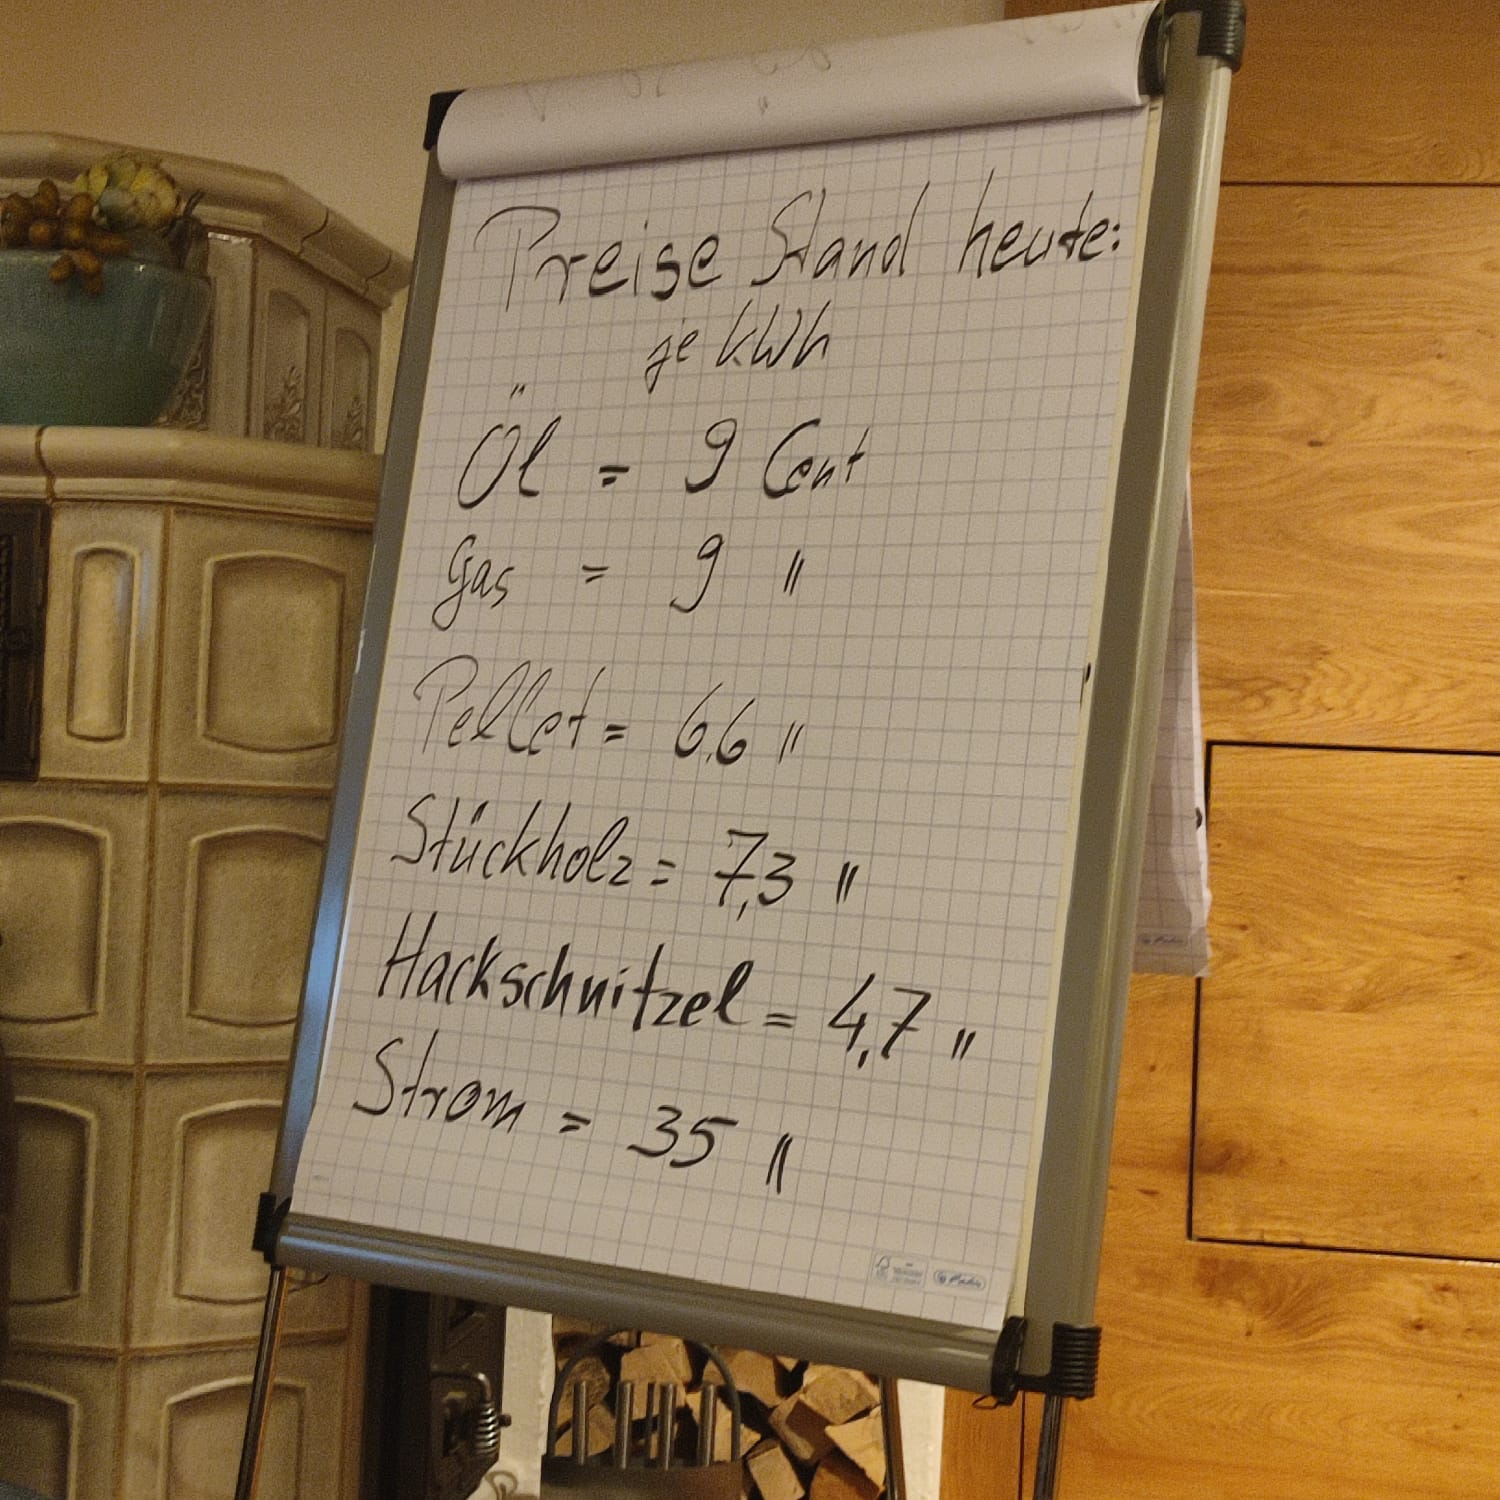 Preise Stand heute:
je kWh
Öl = 9 Cent
Gas = 9 "
Pellet = 6.6 "
Stückholz = 7,3 "
Hackschnitzel = 4,7 "
Strom = 35 "